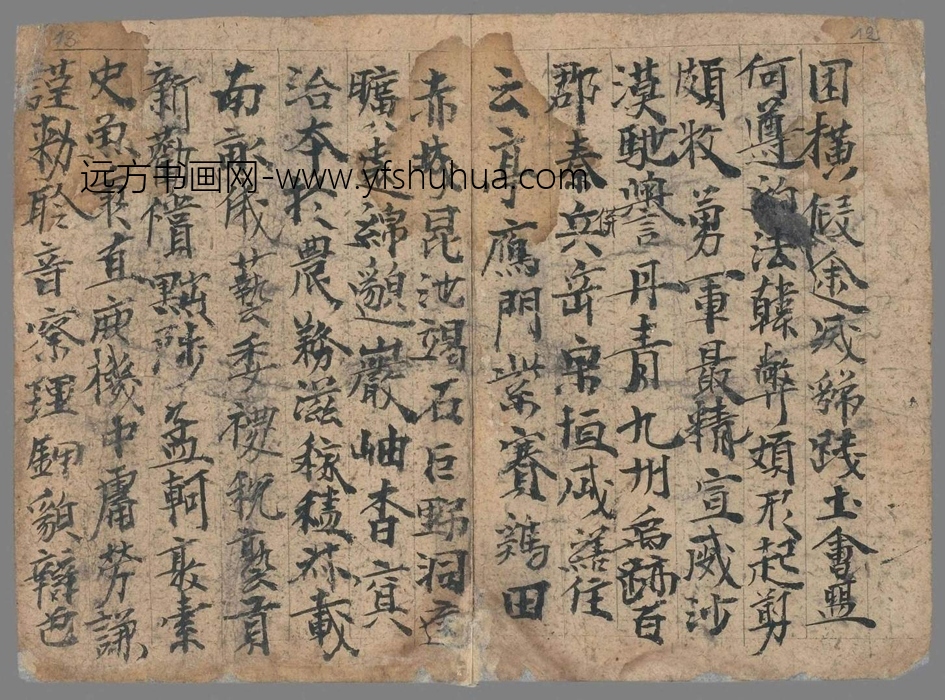 12
困橫假途滅虢踐土會盟
何遵約法韓弊煩形起剪
頗牧勇軍最精宣威沙
漠馳譽丹青九州禹跡百
郡秦兵併岳宗恒咸禪住
云亭鴈門紫塞鷄田
13
赤城昆池竭石巨野洞庭
曠遠綿邈巖岫杳冥
治本於農務滋稼穡俶載
南畝儀藝委禝稅熟貢
新勸償黜陟孟軻敦素
史魚秉直庶機中庸勞謙
謹勑聆音察理鉀貌辯色
远方书画网-www.yfshuhua.com